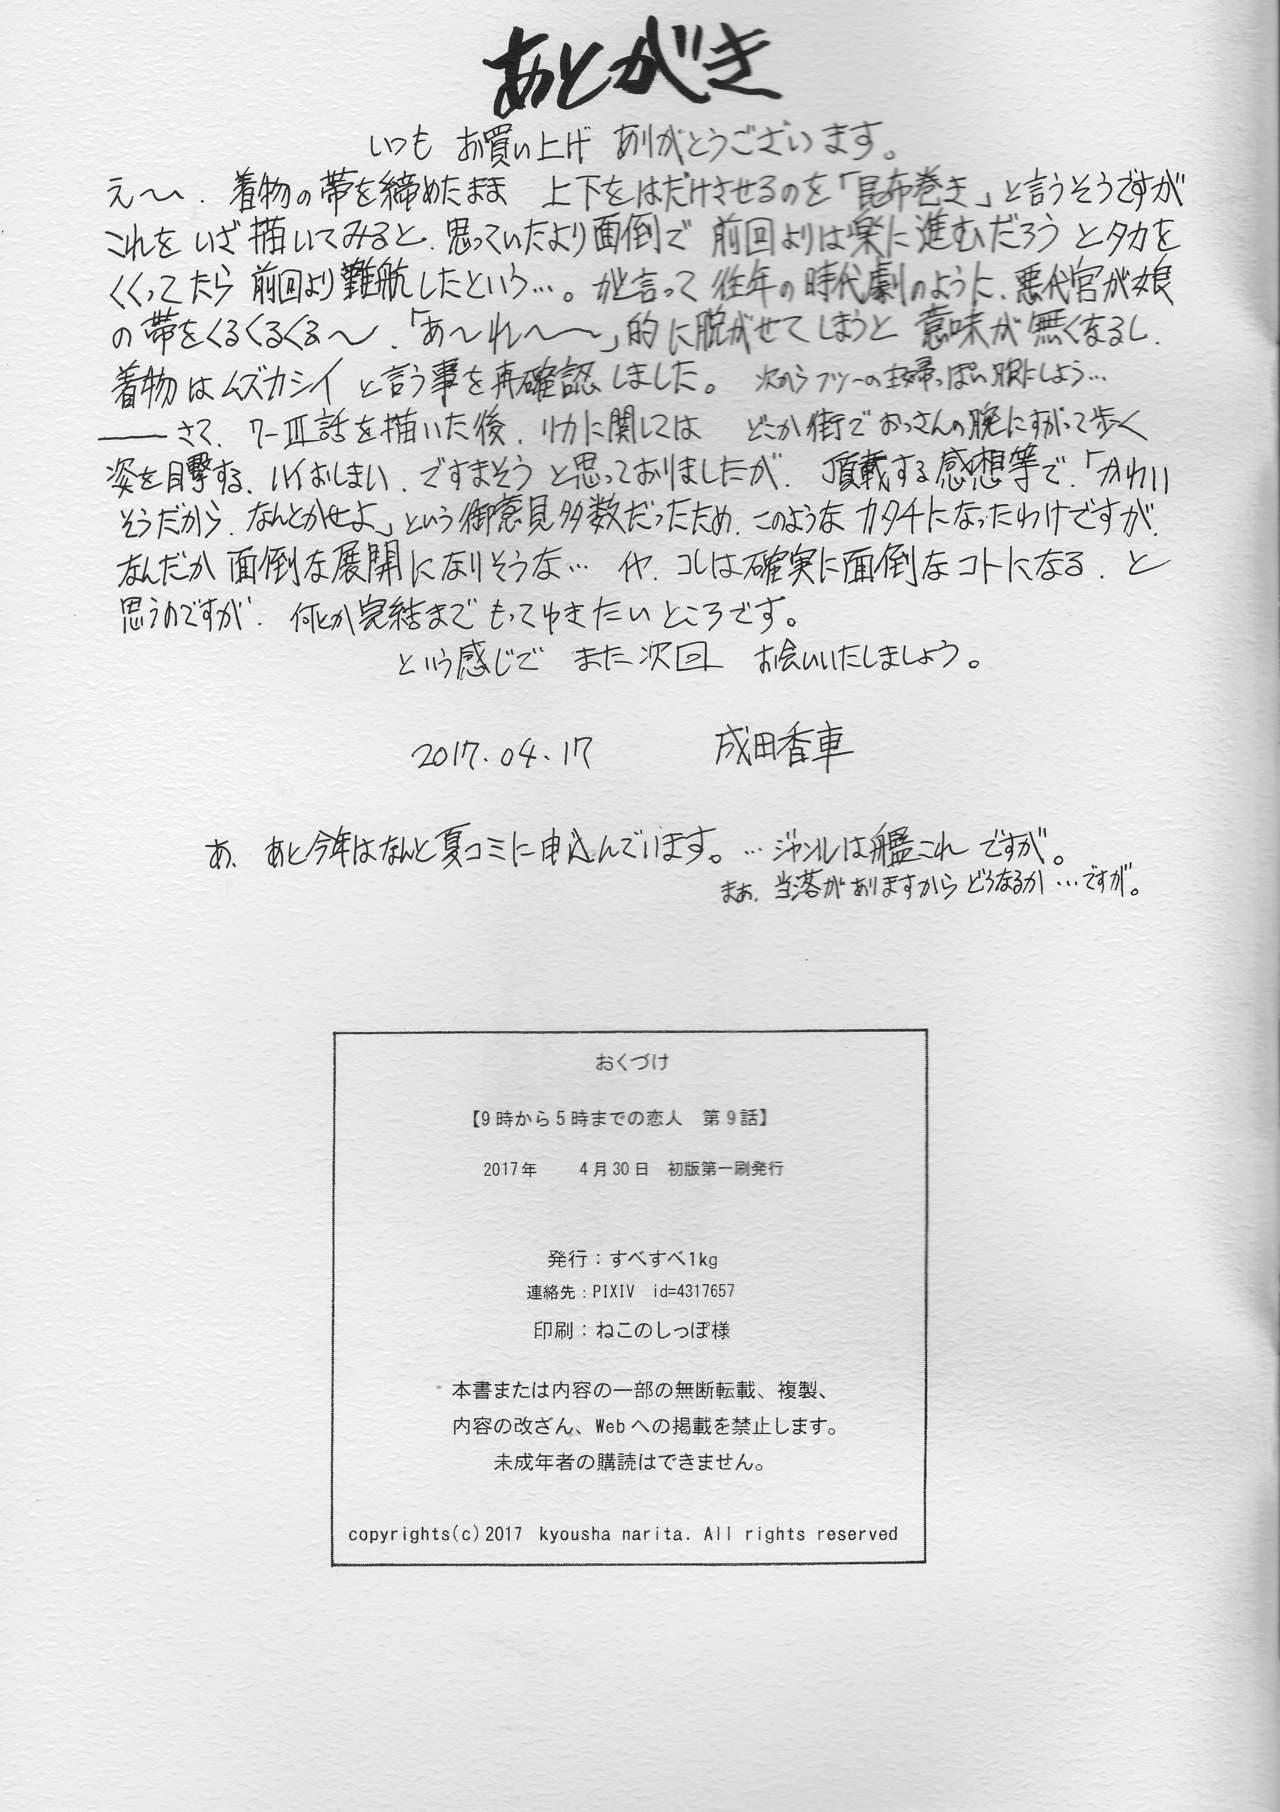 あとがき
いつも お買い上げ ありがとうございます。
え〜、着物の帯を締めたまま 上下をはだけさせるのを「昆布巻き」と言うそうですが
これを いざ描いてみると、思っていたより面倒で 前回よりは楽に進むだろう とタカを
くくってたら 前回より難航したという…。かと言って 往年の時代劇のように、悪代官が娘
の帯をくるくるくる〜、「あ〜れ〜〜」的に脱がせてしまうと 意味が無くなるし、
着物はムズカシイ と言う事を再確認しました。 次からフツーの主婦っぽい服にしよう…
――さて、7-Ⅲ話を描いた後、リカに関しては どこか街でおっさんの腕にすがって歩く
姿を目撃する、ハイおしまい、ですまそう と思っておりましたが、頂載する感想等で、「かわい
そうだから、なんとかせよ」という御意見多数だったため、このようなカタチになったわけですが、
なんだか面倒な展開になりそうな… イヤ、コレは確実に面倒なコトになる、と
思うのですが、何とか完結まで もってゆきたいところです。
という感じで また次回 お会いいたしましょう。
2017.04.17 成田香車
あ、あと今年はなんと夏コミに申込んでいます。…ジャンルは艦これ ですが。
まあ、当落がありますから どうなるか…ですが。
おくづけ
【9時から5時までの恋人 第9話】
2017年 4月30日 初版第一刷発行
発行：すべすべ1kg
連絡先：PIXIV id=4317657
印刷：ねこのしっぽ様
本書または内容の一部の無断転載、複製、
内容の改ざん、Webへの掲載を禁止します。
未成年者の購読はできません。
copyrights(c)2017 kyousha narita. All rights reserved